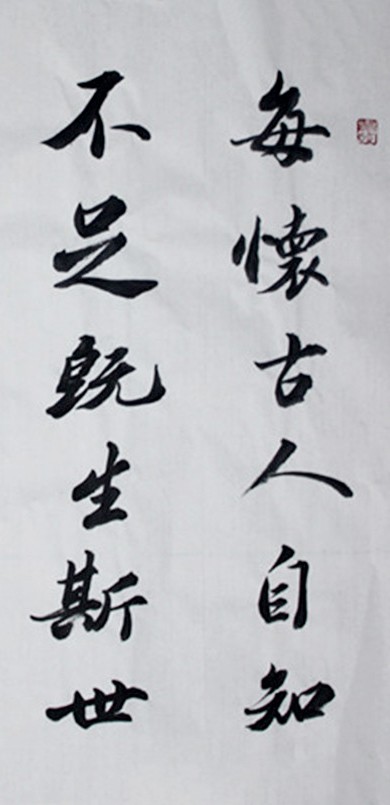 每懷古人自知
不足既生斯世